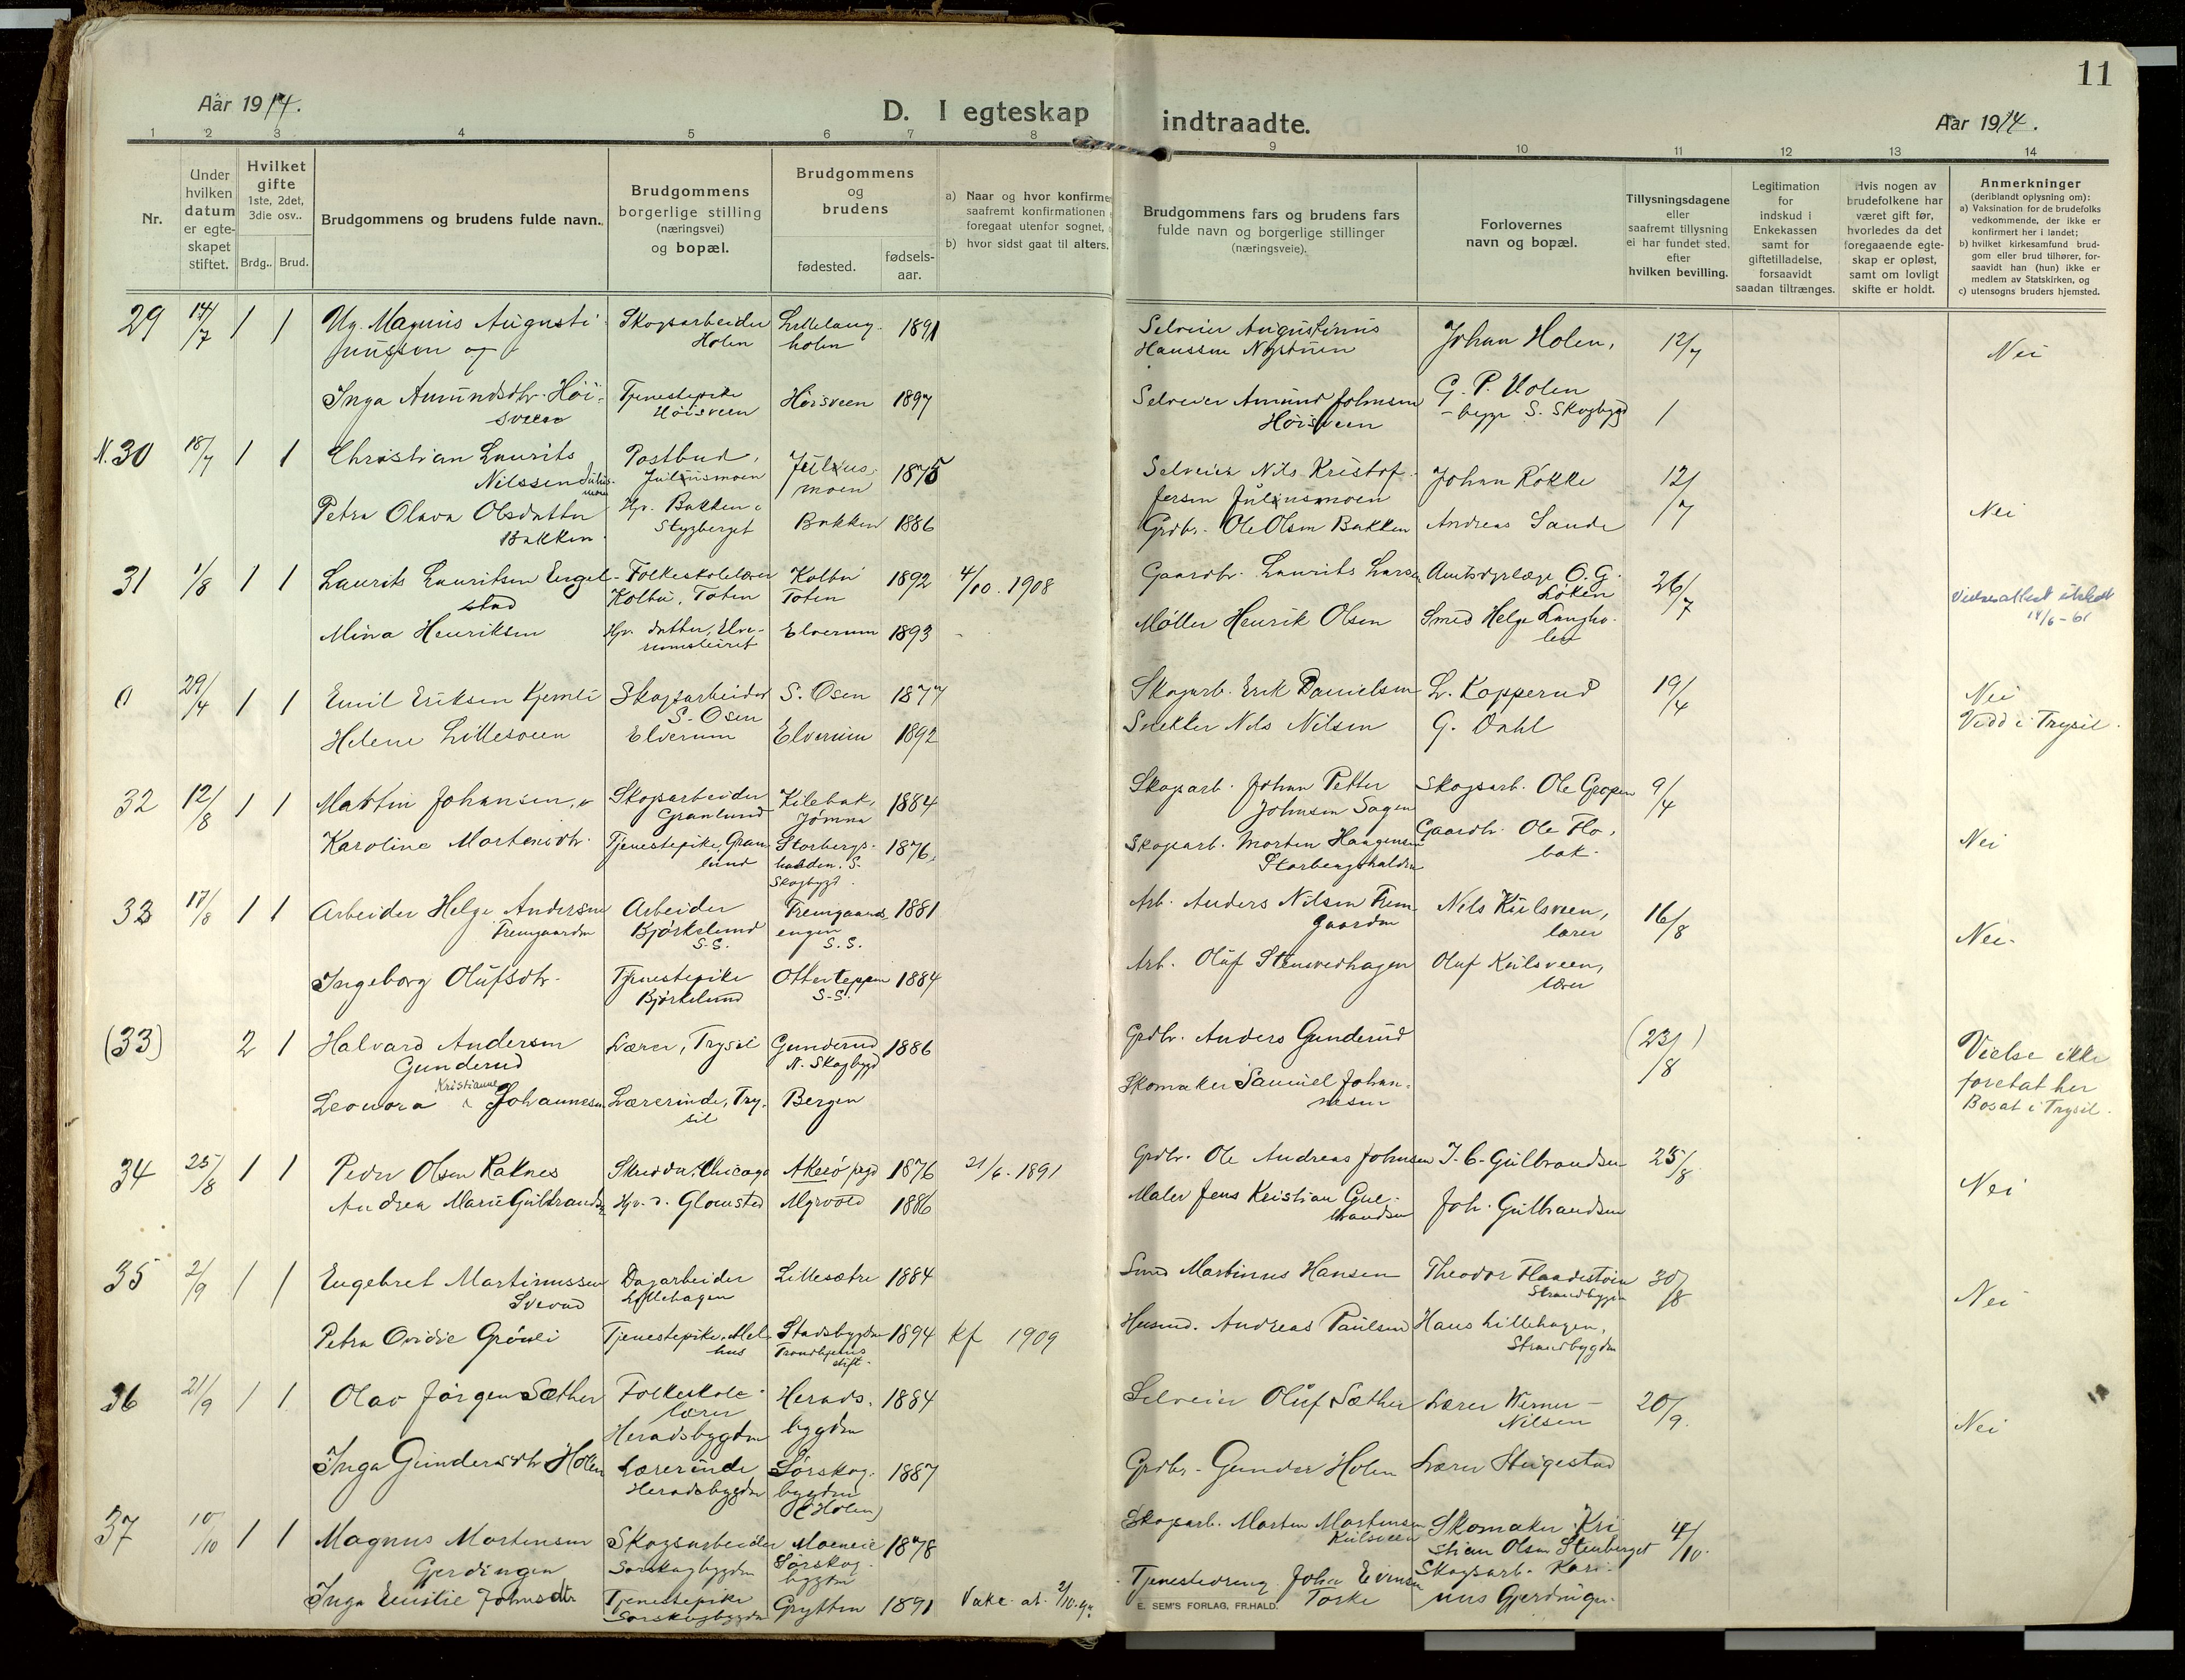 11
Aar 1914.
D. I egteskap indtraadte.
Aar 1914.
1 2 3 4 5 6 7 8 9 10 11 12 13 14
Nr.
Under hvilken datum er egte-skapet stiftet.
Hvilket gifte 1ste, 2det, 3die osv..
Brdg.. Brud.
Brudgommens og brudens fulde navn.
Brudgommens borgerlige stilling (næringsvei) og bopæl.
Brudgommens og brudens
fødested.
fødsels-aar.
a) Naar og hvor konfirme
saafremt konfirmationen
foregaat utenfor sognet,
b) hvor sidst gaat til alters.
Brudgommens fars og brudens fars
fulde navn og borgerlige stillinger
(næringsveie).
Forlovernes
navn og bopæl.
Tillysningsdagene
eller
saafremt tillysning
ei har fundet sted.
efter
hvilken bevilling.
Legitimation
for
indskud i
Enkekassen
samt for
giftetilladelse,
forsaavidt
saadan tiltrænges.
Hvis nogen av
brudefolkene har
været gift før,
hvorledes da det
foregaaende egte-
skap er opløst,
samt om lovligt
skifte er holdt.
Anmerkninger
(deriblandt oplysning om):
a) Vaksination for de brudefolks
vedkommende, der ikke er
konfirmert her i landet;
b) hvilket kirkesamfund brud-
gom eller brud tilhører, for-
saavidt han (hun) ikke er
medlem av Statskirken, og
c) utensogns bruders hjemsted.
29 14/7 1 1 Ug. Magnus Augusti-nussen og Skogsarbeider Holen Lillelang-holen 1891 Selveier Augustinus Hanssen Nystuen Johan Holen, 12/7 Nei
Inga Amundsdtr. Höi-sveen Tjenestepike Höisveen Höisveen 1897 Selveier Amund Johnsen Höisveen G. P. Holen - begge S. Skogbygd 1
N. 30 18/7 1 1 Christian Laurits Nilssen Julius-moen Postbud, Juliusmoen Julius-moen 1875 Selveier Nils Kristof-fersen Juliusmoen Johan Rökke 12/7 Nei
Petra Olava Olsdatter Bakken Hjv. Bakken Stygberget Bakken 1886 Grdbr. Ole Olsen Bakken Andreas Sande
31 1/8 1 1 Laurits Lauritsen Engel-stad Folkeskolelærer Kolbu, Toten Kolbu Toten 1892 4/10. 1908 Gaardbr. Laurits Larsen Amtsdyrlæge O. G. Löken 26/7 Vielsesattest utstedt 14/6-61
Mina Henriksen Hjv. datter, Elve-rumsleiret Elverum 1893 Möller Henrik Olsen Smed Helge Langho-len
0 29/4 1 1 Emil Eriksen Kjemli Skogsarbeider S. Osen S. Osen 1877 Skogarb. Erik Danielsen L. Kopperud 19/4 Nei Viedd i Trysil.
Helene Lillesveen Elverum Elverum 1892 Snekker Nils Nilsen G. Dahl
32 12/8 1 1 Martin Johansen, Skogsarbeider Granlund Kilebak, Jömna 1884 Skogsarb. Johan Petter Johnsen Sagen Skogsarb. Ole Gropen 9/4 Nei
Karoline Mortensdtr. Tjenestepike, Gran-lund Storbergs-halden. S. Skogbygd. 1876. Skogsarb. Morten Haagensen Storbergshalden Gaardbr. Ole Flo-bak.
33 17/8 1 1 Arbeider Helge Andersen Fremgaarden Arbeider Björkelund S.S. Fremgaards-engen S.S. 1881 Arb. Anders Nilsen Frem-gaarden Nils Kulsveen, lærer 16/8 Nei.
Ingeborg Olufsdtr. Tjenestepike Björkelund Otterteppen S.S. 1884 Arb. Oluf Stensvedhagen Oluf Kulsveen, lærer
(33) 2 1 Halvard Andersen Gunderud Lærer, Trysil Gunderud N. Skogbygd 1886 Grdbr. Anders Gunderud (23/8) Vielse ikke foretat her Bosat i Trysil.
Leonora Kristianne Johannesen Lærerinde, Try-sil Bergen Skomaker Samuel Johan-nesen
34 25/8 1 1 Peder Olsen Raknes Skredder, Chicago Akerö pgd 1876 21/6. 1891 Grdbr. Ole Andreas Johnsen J. C. Gulbrandsen 23/8 Nei
Andrea Marie Gulbrandsen Hjv. d. Glomsted Myrvold 1886 Maler Jens Kristian Gul-brandsen Joh. Gulbrandsen
35 2/9 1 1 Engebret Martinussen Sverud Dagarbeider Lillehagen Lillesætre 1884 Smed Martinus Hansen Theodor Flaadestöen Strandbygden 30/8 Nei
Petra Ovidie Grönli Tjenestepike. Mel-hus Stadsbygden Trondhjems stift. 1894 kf 1909 Husmd. Andreas Paulsen Hans Lillehagen, Strandbygden
36 21/9 1 1 Olav Jörgen Sæther Folkeskole-lærer Heradsbygden Herads-bygden 1884 Selveier Oluf Sæther Lærer Werner Nilsen 20/9. Nei
Inga Gundersdtr Holen Lærerinde Heradsbygden Sörskog-bygden (Holen) 1887 Grdbr. Gunder Holen Lærer Stigestad
37 10/10 1 1 Magnus Mortensen Gjerdingen Skogsarbeider Sörskogbygden Moeneie Sörskog-bygden 1878 Skogsarb. Morten Mortensen Kulsveen Skomaker Kri-stian Olsen Stenberget 4/10.
Inga Emilie Johnsdtr Tjenestepike Sörskogbygden Grytten 1891 Vakc. at. 2/10. Tjenestedreng John Evensen Torke Skogsarb. Kari-nus Gjerdingen.
E. SEM'S FORLAG, FR.HALD.